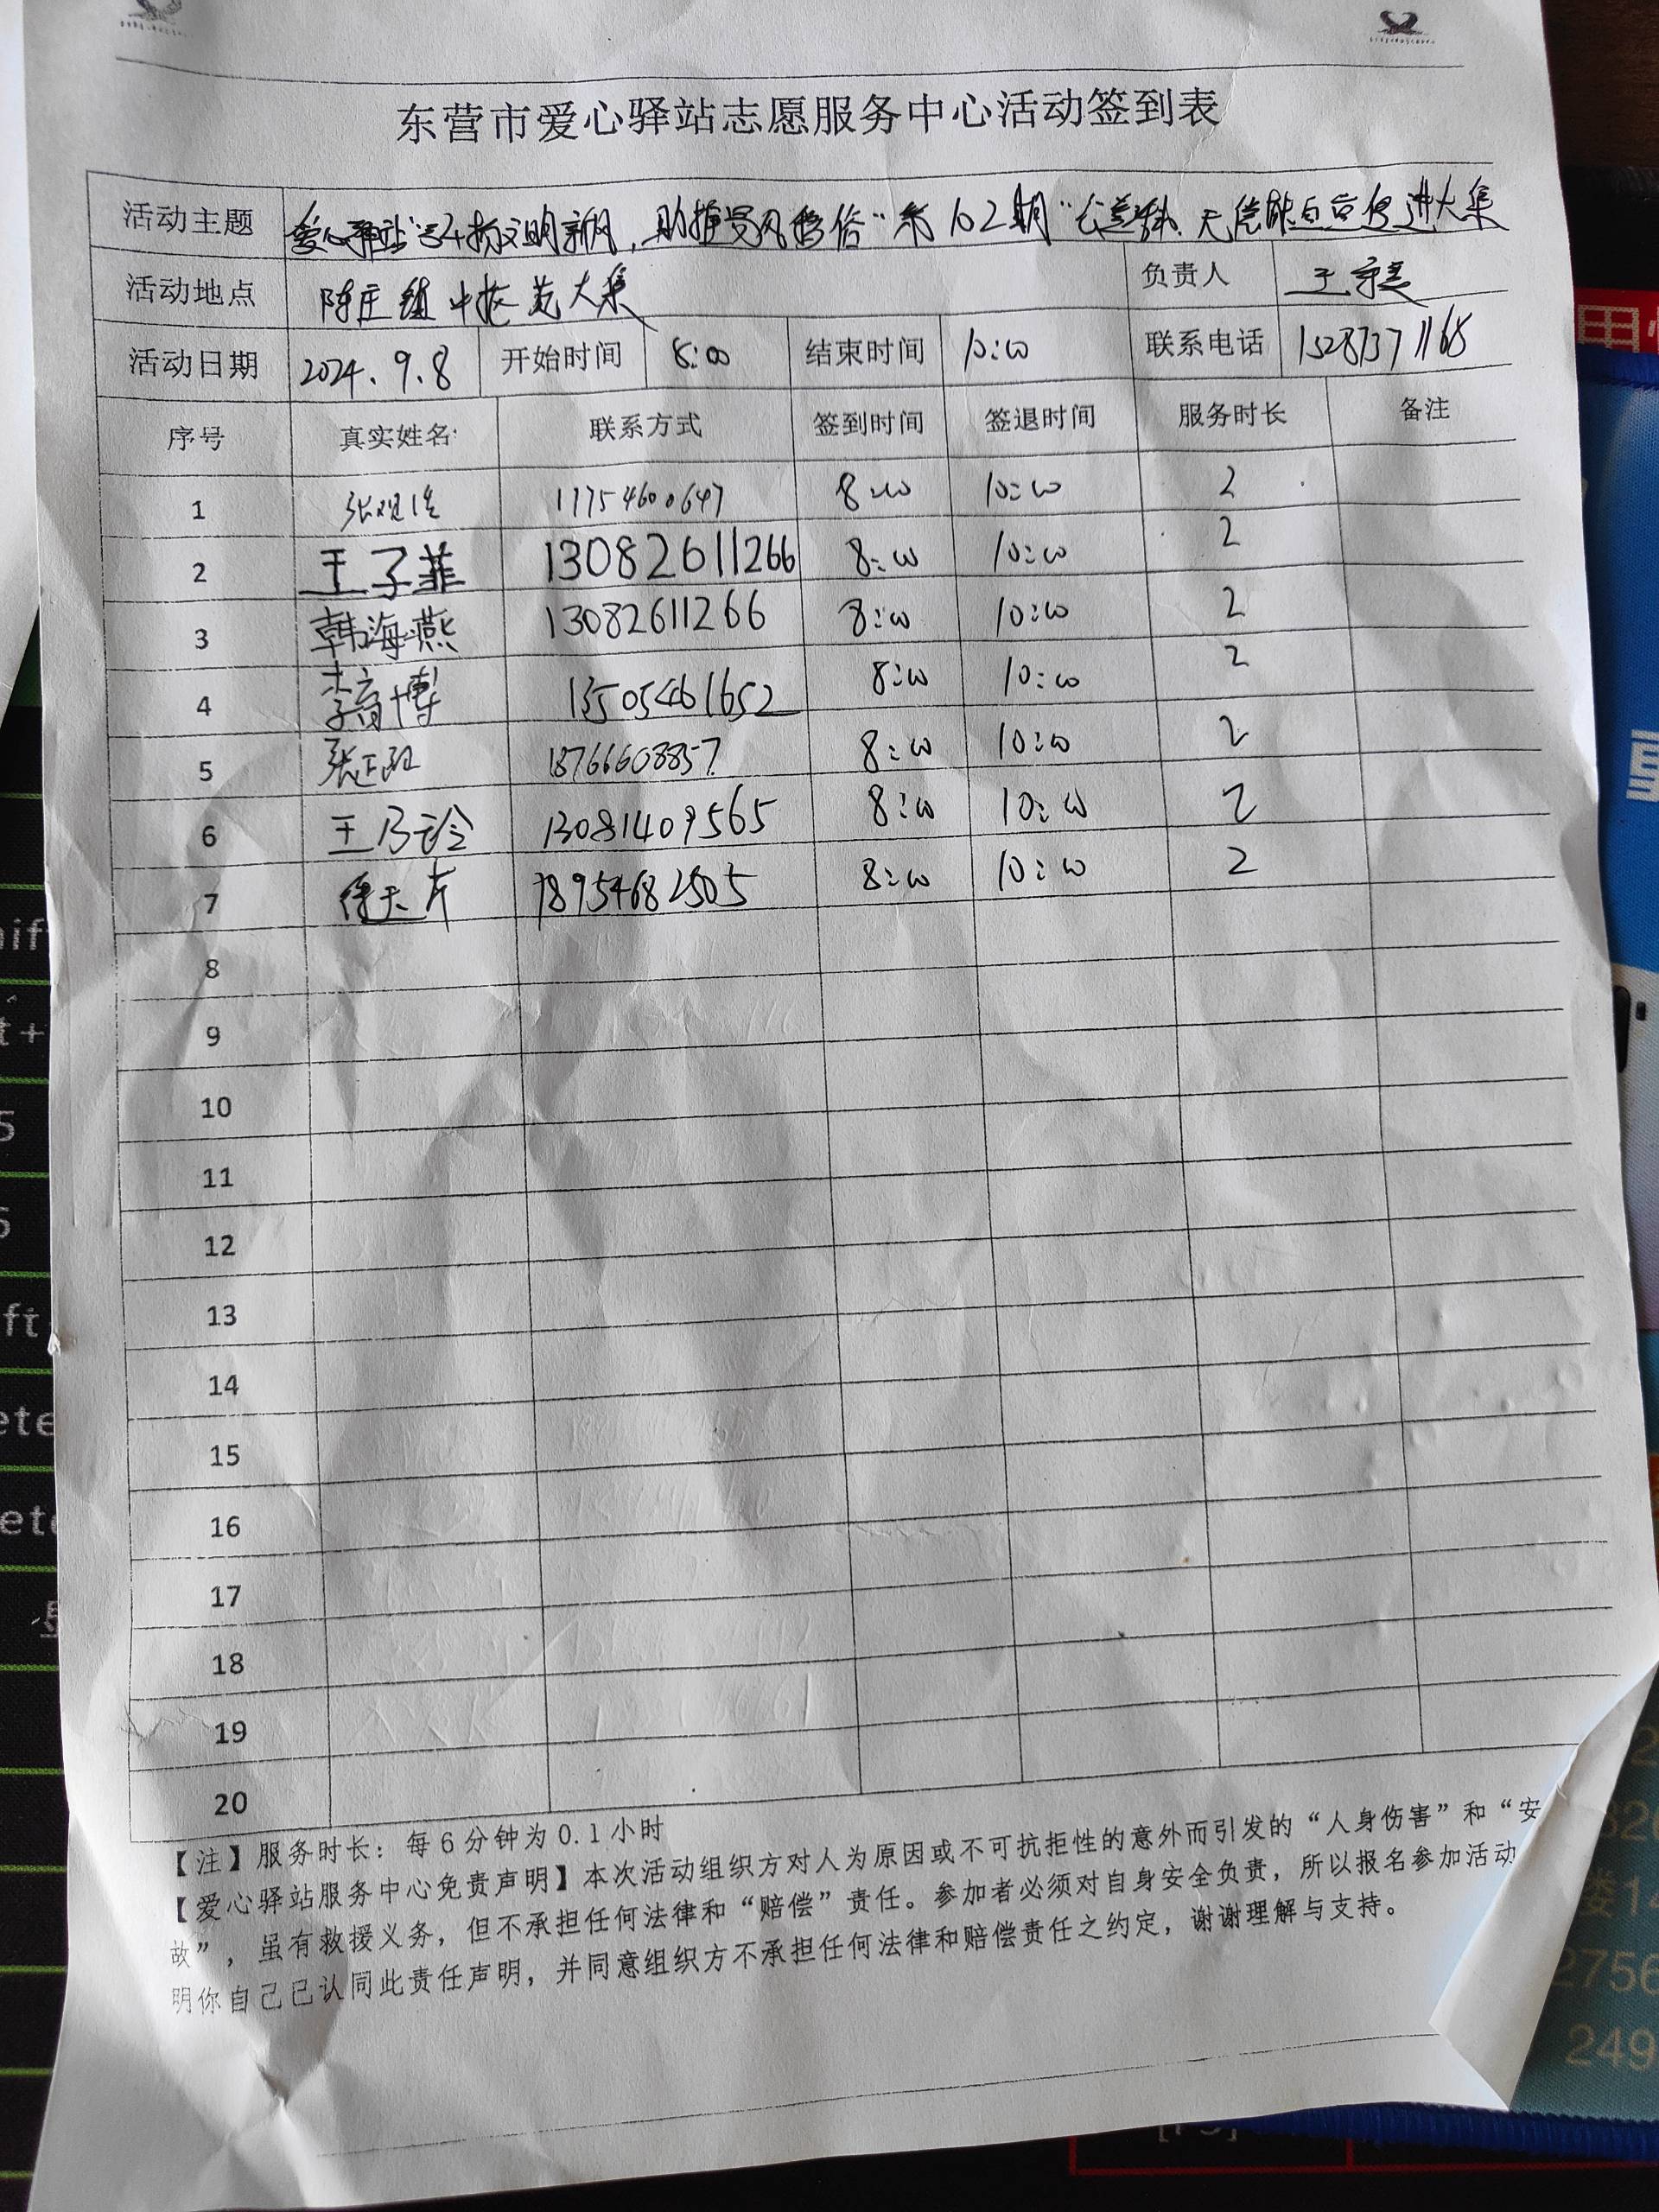 东营市爱心驿站志愿服务中心活动签到表
活动主题 爱心驿站 弘扬文明新风,助推移风易俗"第102期" 无偿献血宣传进大集
活动地点 陈庄镇 大集 负责人 王
活动日期 2024.9.8 开始时间 8:00 结束时间 10:00 联系电话 15287371168
序号 真实姓名 联系方式 签到时间 签退时间 服务时长 备注
1 张观 17754600647 8:00 10:00 2
2 王子菲 13082611266 8:00 10:00 2
3 韩海燕 13082611266 8:00 10:00 2
4 李高博 13505461652 8:00 10:00 2
5 张 18766608857 8:00 10:00 2
6 王乃 13081409565 8:00 10:00 2
7 徐天 18954682505 8:00 10:00 2
8
9
10
11
12
13
14
15
16
17
18
19
20
【注】服务时长:每6分钟为0.1小时
【爱心驿站服务中心免责声明】本次活动组织方对人为原因或不可抗拒性的意外而引发的“人身伤害”和“安
故”,虽有救援义务,但不承担任何法律和“赔偿”责任。参加者必须对自身安全负责,所以报名参加活动
明你自己已认同此责任声明,并同意组织方不承担任何法律和赔偿责任之约定,谢谢理解与支持。